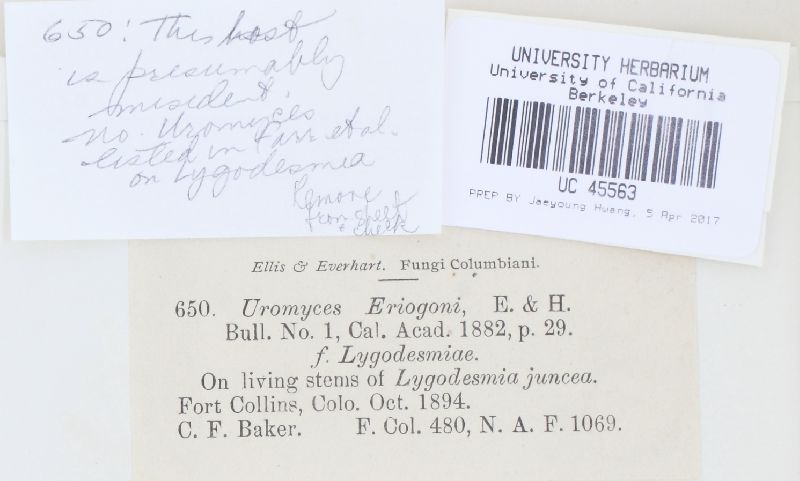 650: This host
is presumably
misident.
no. Uromyces
listed in Farr et al.
on Lygodesmia
Remove
from sheet
& check
UNIVERSITY HERBARIUM
University of California
Berkeley
UC 45563
PREP BY Jaeyoung Hwang, 5 Apr 2017
Ellis & Everhart. Fungi Columbiani.
650. Uromyces Eriogoni, E. & H.
Bull. No. 1, Cal. Acad. 1882, p. 29.
f. Lygodesmiae.
On living stems of Lygodesmia juncea.
Fort Collins, Colo. Oct. 1894.
C. F. Baker. F. Col. 480, N. A. F. 1069.